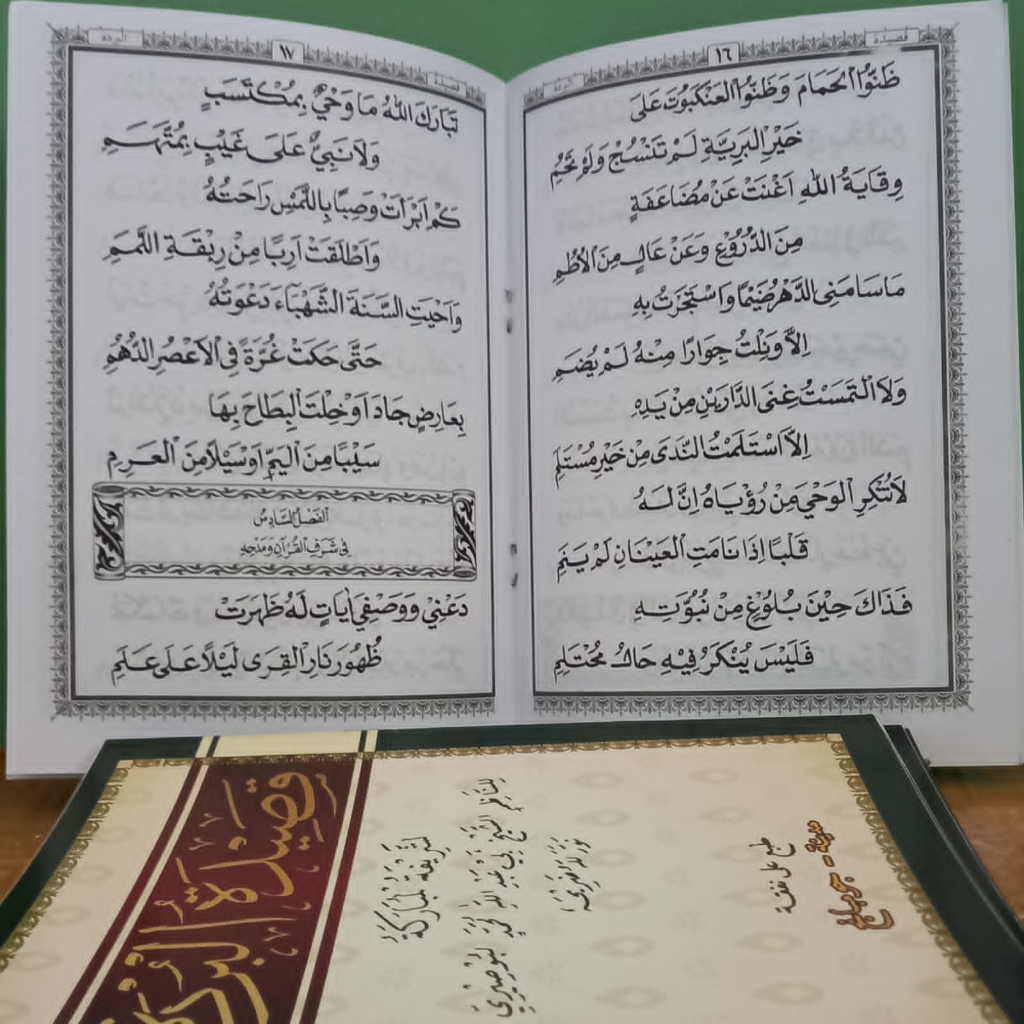 قصيدة
١٦
البردة
ظَنُّوا الْحَمَامَ وَظَنُّوا الْعَنْكَبُوتَ عَلَى
خَيْرِ الْبَرِيَّةِ لَمْ تَنْسُجْ وَلَمْ تَحُمِ
وِقَايَةُ اللهِ اَغْنَتْ عَنْ مُضَاعَفَةٍ
مِنَ الدُّرُوْعِ وَعَنْ عَالٍ مِنَ الْأُطُمِ
مَا سَامَنِى الدَّهْرُ ضَيْمًا وَاسْتَجَرْتُ بِهِ
اِلَّا وَنِلْتُ جِوَارًا مِنْهُ لَمْ يُضَمِ
وَلَا الْتَمَسْتُ غِنَى الدَّارَيْنِ مِنْ يَدِهِ
اِلَّا اسْتَلَمْتُ النَّدَى مِنْ خَيْرِ مُسْتَلَمِ
لَا تُنْكِرِ الْوَحْيَ مِنْ رُؤْيَاهُ اِنَّ لَهُ
قَلْبًا اِذَا نَامَتِ الْعَيْنَانِ لَمْ يَنَمِ
فَذَاكَ حِيْنَ بُلُوْغٍ مِنْ نُبُوَّتِهِ
فَلَيْسَ يُنْكَرُ فِيْهِ حَالُ مُحْتَلِمِ
قصيدة
١٧
البردة
تَبَارَكَ اللهُ مَا وَحْيٌ بِمُكْتَسَبٍ
وَلَا نَبِيٌّ عَلَى غَيْبٍ بِمُتَّهَمِ
كَمْ اَبْرَأَتْ وَصِبًا بِاللَّمْسِ رَاحَتُهُ
وَاَطْلَقَتْ اَرِبًا مِنْ رِبْقَةِ اللَّمَمِ
وَاَحْيَتِ السَّنَةَ الشَّهْبَاءَ دَعْوَتُهُ
حَتَّى حَكَتْ غُرَّةً فِى الْاَعْصُرِ الدُّهُمِ
بِعَارِضٍ جَادَ اَوْ خِلْتَ الْبِطَاحَ بِهَا
سَيْبًا مِنَ الْيَمِّ اَوْ سَيْلًا مِنَ الْعَرِمِ
الفَصْلُ السَّادِسُ
فِى شَرَفِ القُرْآنِ وَمَدْحِهِ
دَعْنِيْ وَوَصْفِيَ اٰيَاتٍ لَهُ ظَهَرَتْ
ظُهُوْرَ نَارِ الْقِرَى لَيْلًا عَلَى عَلَمِ
قصيدة البردة
الشريفة المباركة
للناظم الشيخ أبي عبد الله محمد البوصيري
طبع على نفقة